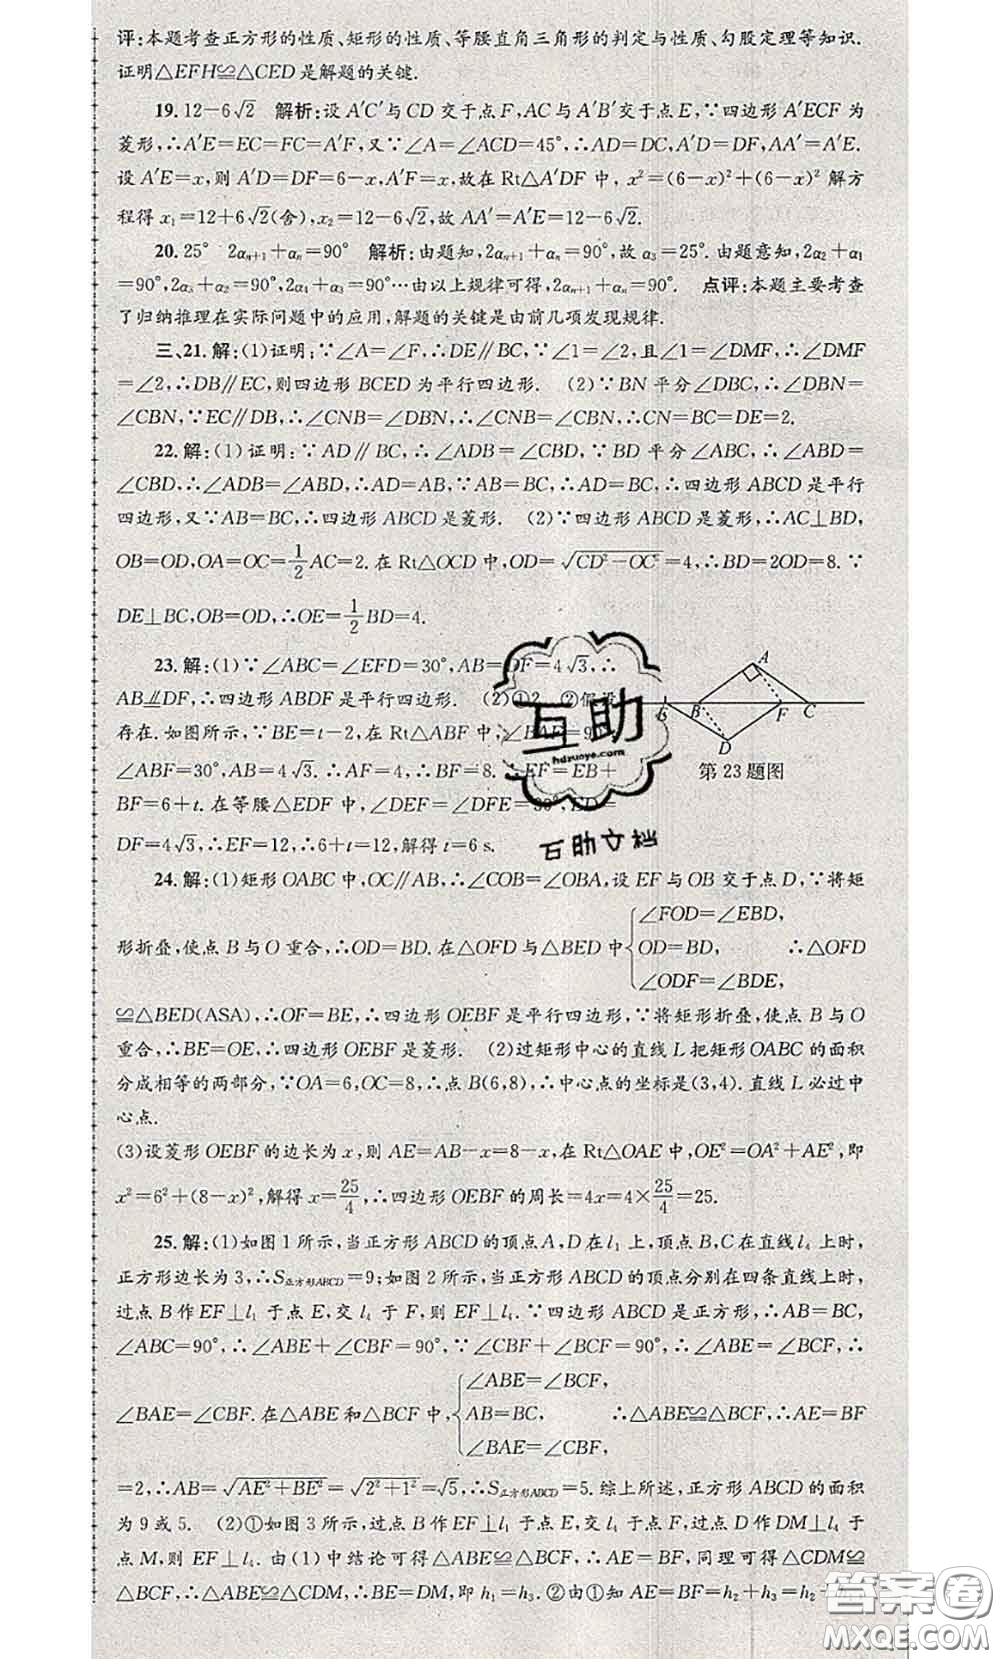 评:本题考查正方形的性质、矩形的性质、等腰直角三角形的判定与性质、勾股定理等知识.
证明△EFH≌△CED是解题的关键.
19.12-6√2　解析:设A′C′与CD交于点F,AC与A′B′交于点E,∵四边形A′ECF为
菱形,∴A′E=EC=FC=A′F,又∵∠A=∠ACD=45°,∴AD=DC,A′D=DF,AA′=A′E.
设A′E=x,则A′D=DF=6-x,A′F=x,故在Rt△A′DF中, x²=(6-x)²+(6-x)² 解方
程得x₁=12+6√2(舍),x₂=12-6√2,故AA′=A′E=12-6√2.
20.25°　2αₙ₊₁+αₙ=90°　解析:由题知,2αₙ₊₁+αₙ=90°,故α₃=25°.由题意知,2α₂+α₁
=90°,2α₃+α₂=90°,2α₄+α₃=90°…由以上规律可得,2αₙ₊₁+αₙ=90°.　点评:本题主要考查
了归纳推理在实际问题中的应用,解题的关键是由前几项发现规律.
三、21.解:(1)证明:∵∠A=∠F,∴DE∥BC,∵∠1=∠2,且∠1=∠DMF,∴∠DMF
=∠2,∴DB∥EC,则四边形BCED为平行四边形.　(2)∵BN平分∠DBC,∴∠DBN=
∠CBN,∵EC∥DB,∴∠CNB=∠DBN,∴∠CNB=∠CBN,∴CN=BC=DE=2.
22.解:(1)证明:∵AD∥BC,∴∠ADB=∠CBD,∵BD平分∠ABC,∴∠ABD=
∠CBD,∴∠ADB=∠ABD,∴AD=AB,∵AB=BC,∴AD=BC,∴四边形ABCD是平行
四边形,又∵AB=BC,∴四边形ABCD是菱形.　(2)∵四边形ABCD是菱形,∴AC⊥BD,
OB=OD,OA=OC=1/2AC=2.在Rt△OCD中,OD=√(CD²-OC²)=4,∴BD=2OD=8.∵
DE⊥BC,OB=OD,∴OE=1/2BD=4.
23.解:(1)∵∠ABC=∠EFD=30°,AB=DF=4√3,∴
AB∥DF,∴四边形ABDF是平行四边形.　(2)①2　②假设
存在.如图所示,∵BE=t-2,在Rt△ABF中,∠BAF=90°,
∠ABF=30°,AB=4√3.∴AF=4,∴BF=8.∴EF=EB+
BF=6+t.在等腰△EDF中,∠DEF=∠DFE=30°,ED=
DF=4√3,∴EF=12,∴6+t=12,解得t=6 s.
A
E B F C
D
第23题图
24.解:(1)矩形OABC中,OC∥AB,∴∠COB=∠OBA,设EF与OB交于点D,∵将矩
形折叠,使点B与O重合,∴OD=BD.在△OFD与△BED中{∠FOD=∠EBD, OD=BD, ∠ODF=∠BDE,　∴△OFD
≌△BED(ASA),∴OF=BE,∴四边形OEBF是平行四边形,∵将矩形折叠,使点B与O
重合,∴BE=OE,∴四边形OEBF是菱形.　(2)过矩形中心的直线L把矩形OABC的面积
分成相等的两部分,∵OA=6,OC=8,∴点B(6,8),∴中心点的坐标是(3,4).直线L必过中
心点.
(3)设菱形OEBF的边长为x,则AE=AB-x=8-x,在Rt△OAE中,OE²=OA²+AE²,即
x²=6²+(8-x)²,解得x=25/4,∴四边形OEBF的周长=4x=4×25/4=25.
25.解:(1)如图1所示,当正方形ABCD的顶点A,D在l₁上,顶点B,C在直线l₄上时,
正方形边长为3,∴S正方形ABCD=9;如图2所示,当正方形ABCD的顶点分别在四条直线上时,
过点B作EF⊥l₁于点E,交l₄于F,则EF⊥l₄.∵四边形ABCD是正方形,∴AB=BC,
∠ABC=90°,∴∠ABE+∠CBF=90°,∵∠CBF+∠BCF=90°,∴∠ABE=∠BCF,∴
∠BAE=∠CBF.在△ABE和△BCF中,{∠ABE=∠BCF, AB=BC, ∠BAE=∠CBF,　∴△ABE≌△BCF,∴AE=BF
=2,∴AB=√(AE²+BE²)=√(2²+1²)=√5,∴S正方形ABCD=5.综上所述,正方形ABCD的面积
为9或5.　(2)①如图3所示,过点B作EF⊥l₁于点E,交l₄于点F,过点D作DM⊥l₄于
点M,则EF⊥l₄.由(1)中结论可得△ABE≌△BCF,∴AE=BF,同理可得△CDM≌
△BCF,∴△ABE≌△CDM,∴BE=DM,即h₁=h₃.②由①知AE=BF=h₂+h₃=h₂+
互助
hdzuoye.com
互助文档
答案圈
MXQE.COM